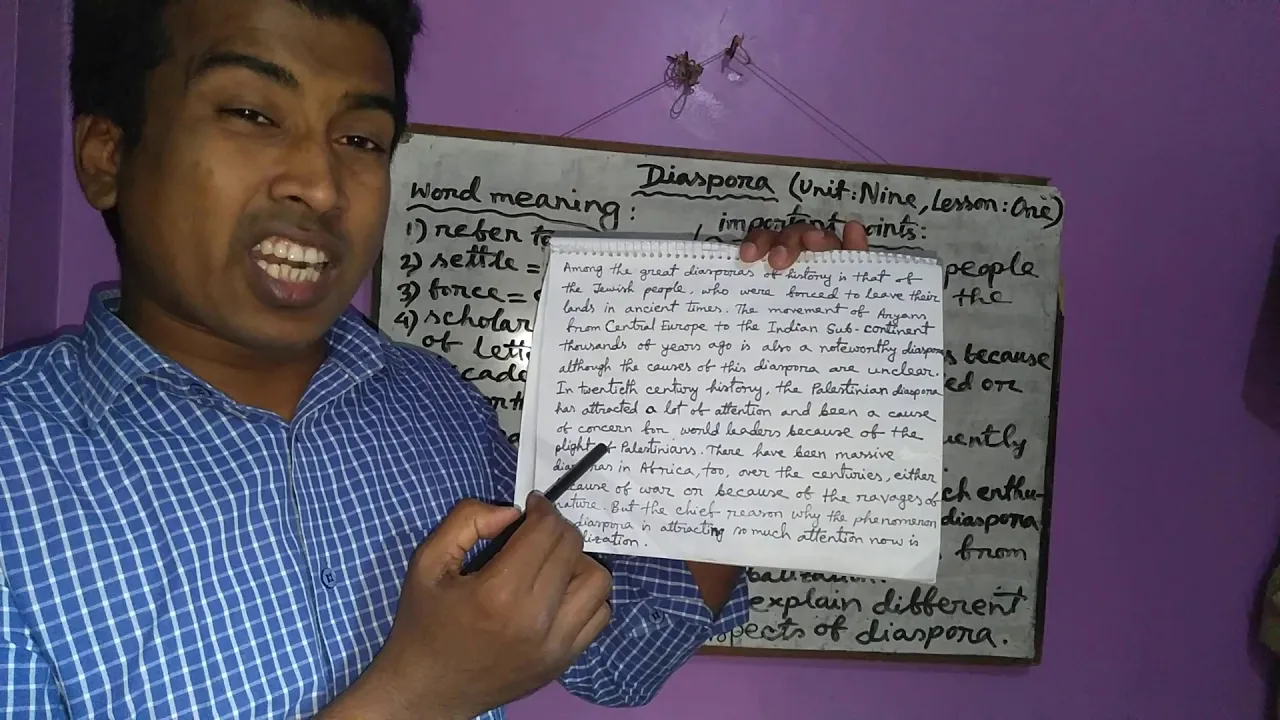 Diaspora (Unit: Nine, Lesson: One)
Word meaning:
1) refer to
2) settle =
3) force =
4) scholar
of lette
cade
important points:
people
the
because
ed on
uently
ch enthu-
diaspora
from
explain different
spects of diaspora.
Among the great diasporas of history is that of
the Jewish people, who were forced to leave their
lands in ancient times. The movement of Aryans
from Central Europe to the Indian Sub-continent
thousands of years ago is also a noteworthy diaspora
although the causes of this diaspora are unclear.
In twentieth century history, the Palestinian diaspora
has attracted a lot of attention and been a cause
of concern for world leaders because of the
plight of Palestinians. There have been massive
diasporas in Africa, too, over the centuries, either
cause of war or because of the ravages of
nature. But the chief reason why the phenomenon
diaspora is attracting so much attention now is
lization.